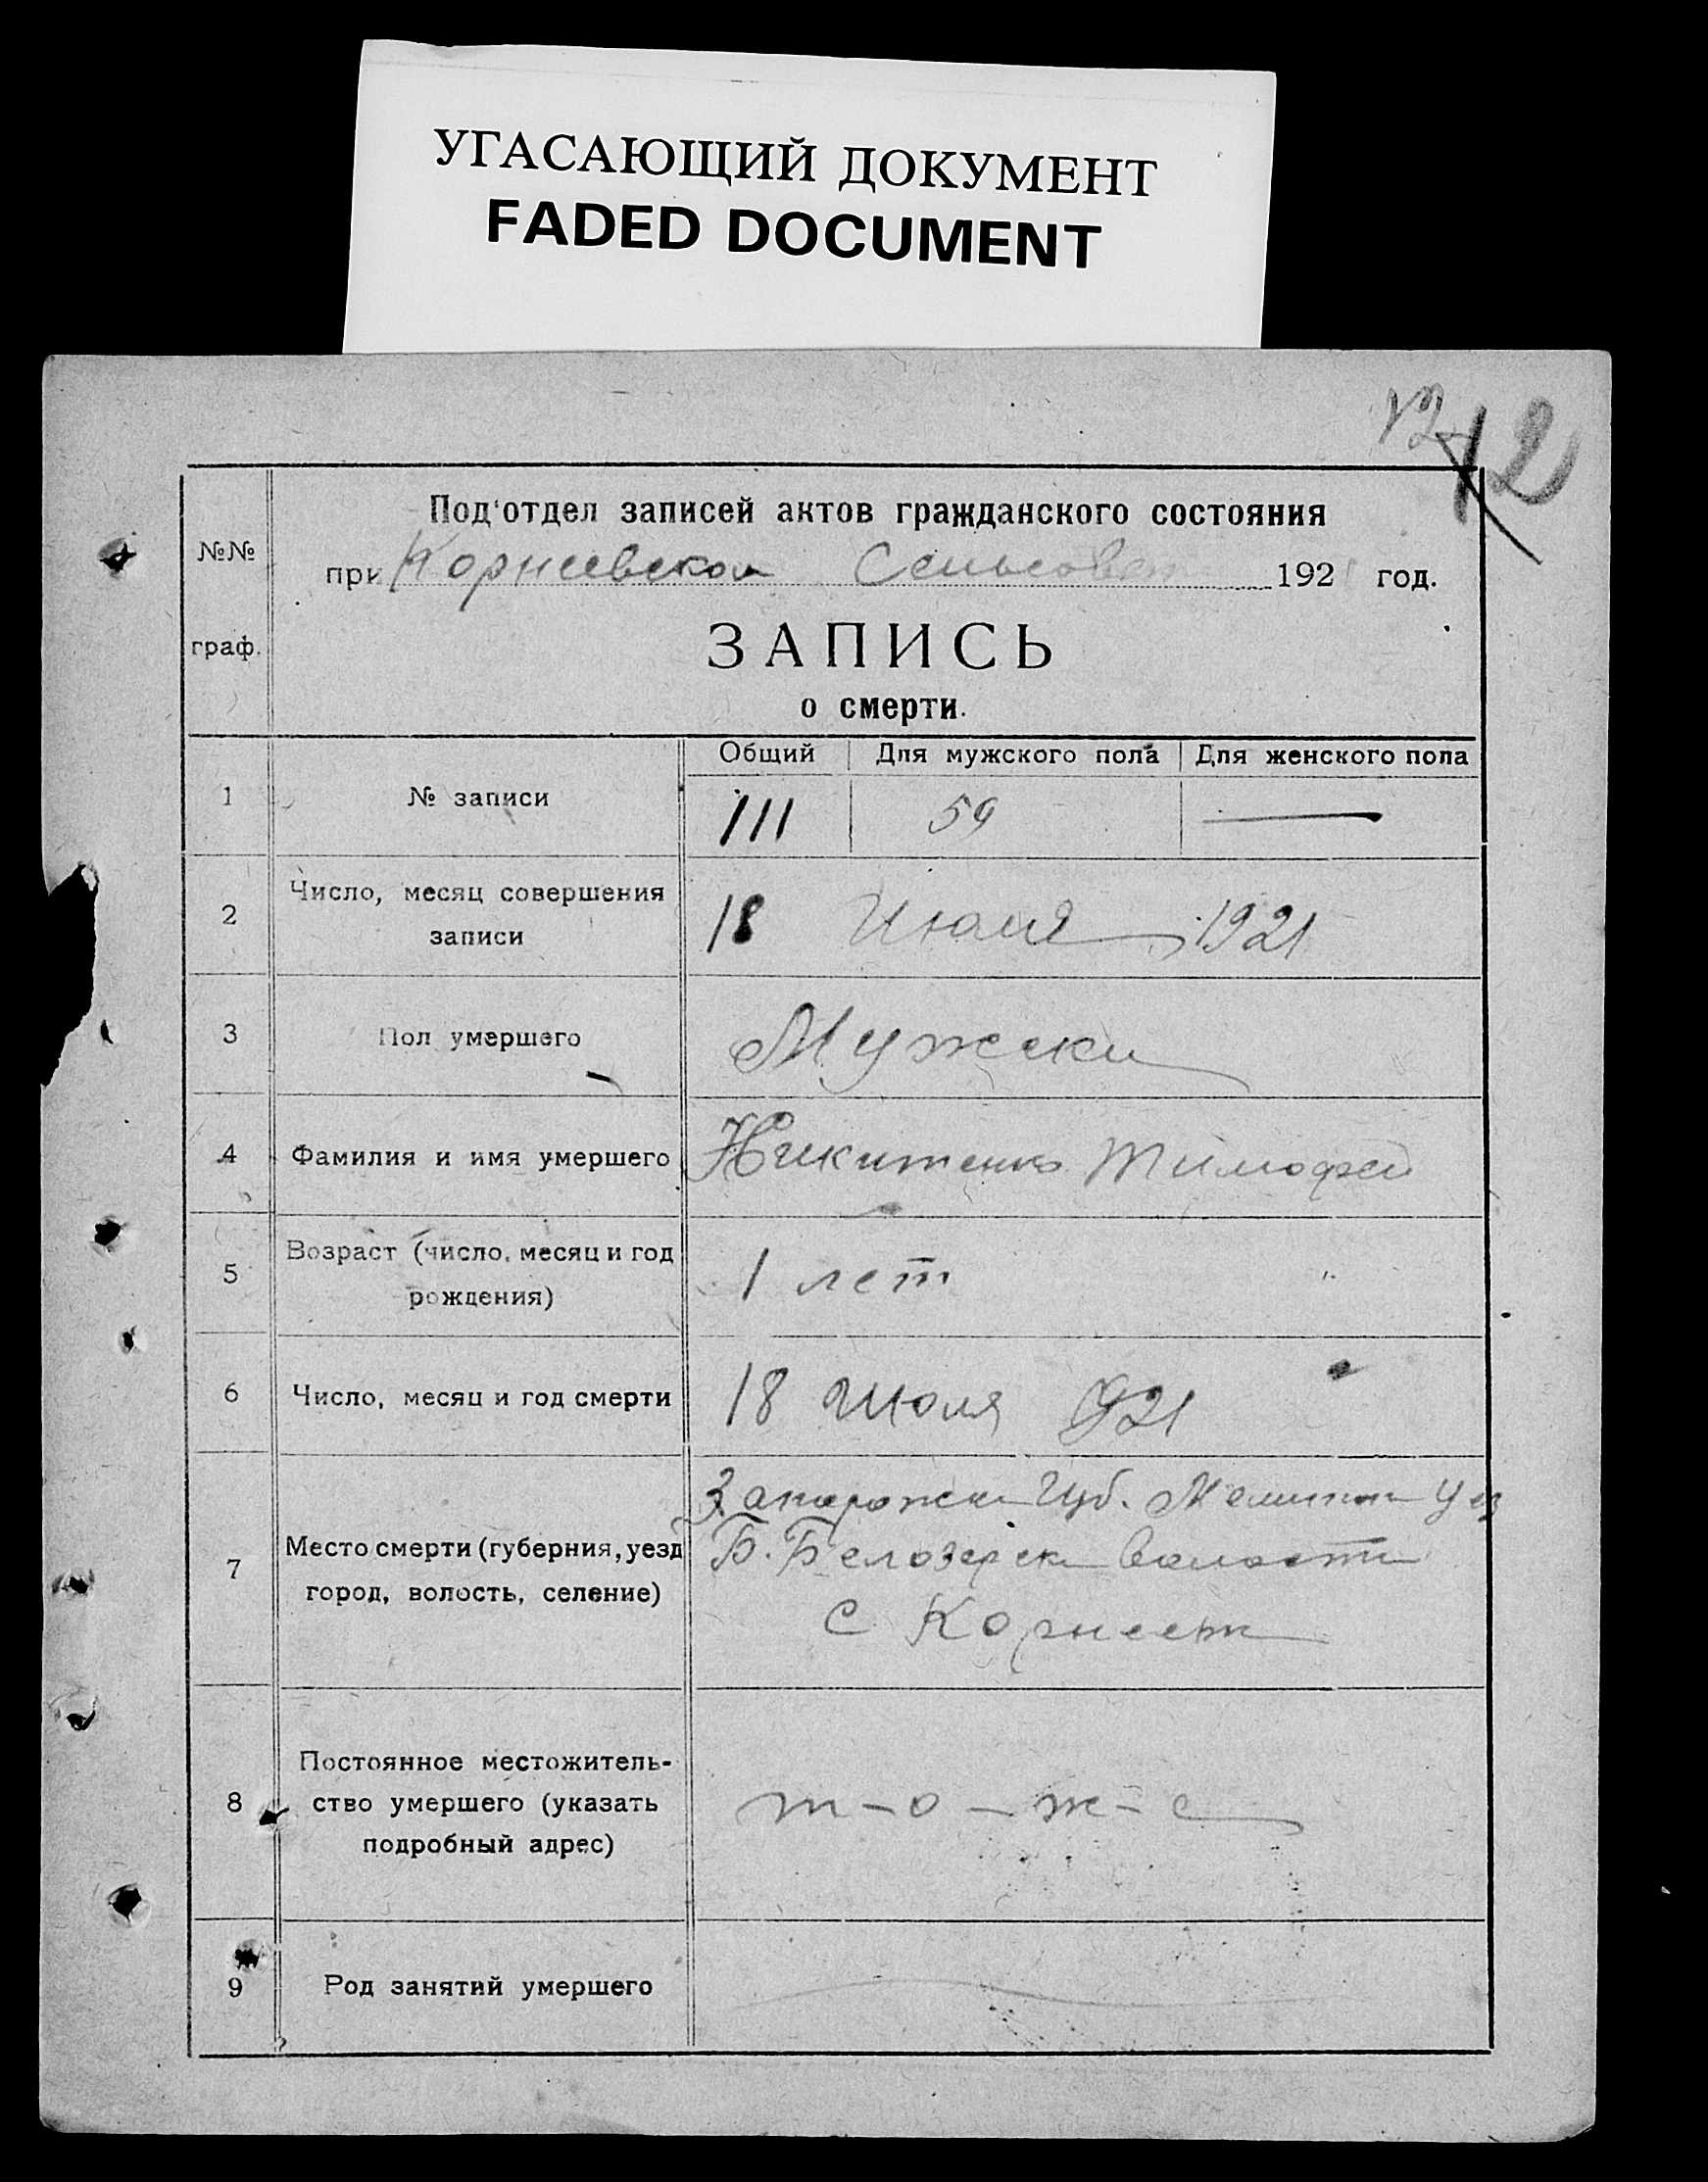 УГАСАЮЩИЙ ДОКУМЕНТ
FADED DOCUMENT
12 12
Под'отдел записей актов гражданского состояния
№№
при Корнеевском Сельсовет 192 год.
граф.
ЗАПИСЬ
о смерти.
Общий Для мужского пола Для женского пола
1 № записи 111 59 —
2 Число, месяц совершения
записи
18 Июля 1921
3 Пол умершего Мужски
4 Фамилия и имя умершего Никитенко Тимофей
5 Возраст (число, месяц и год
рождения)
1 лет
6 Число, месяц и год смерти 18 Июля 921
7 Место смерти (губерния, уезд
город, волость, селение)
Запорожск Губ. Мелитоп Уез
Б. Белозерск волости
с Корнеевк
8 Постоянное местожитель-
ство умершего (указать
подробный адрес)
т-о-ж-е
9 Род занятий умершего